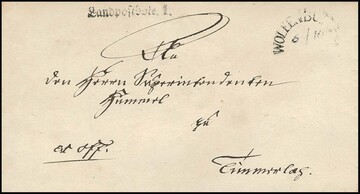 Landpostbote. 1.
WOLFENBÜ
6 / 10
An
den Herrn Superintendenten
Hummel
zu
Timmerlah.
ex off.